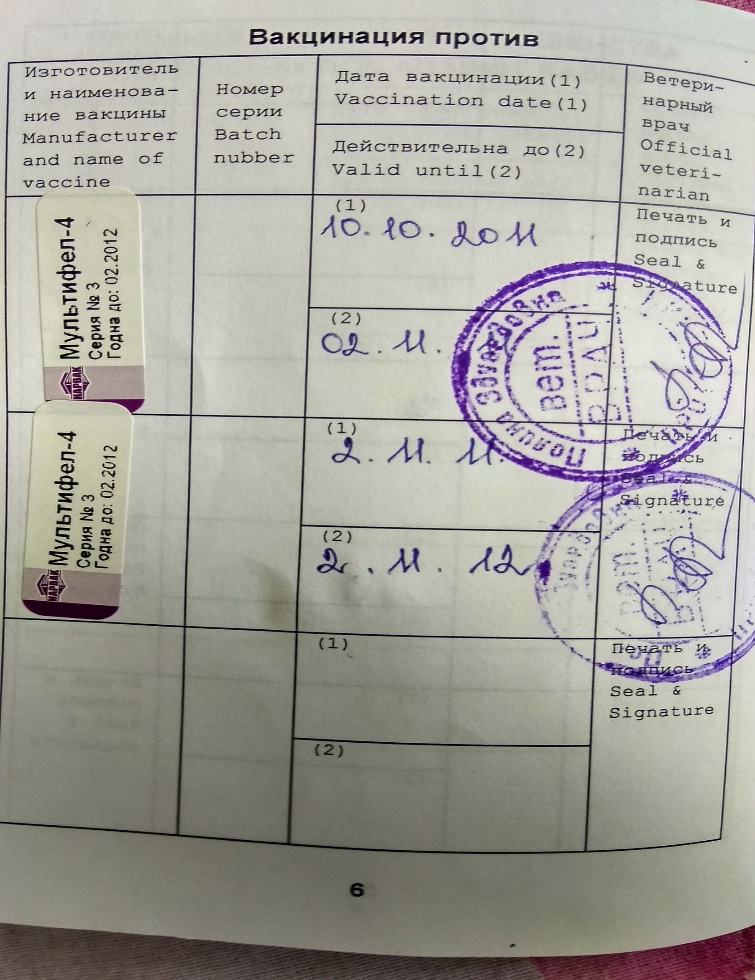 Вакцинация против
Изготовитель
и наименова-
ние вакцины
Manufacturer
and name of
vaccine
Номер
серии
Batch
nubber
Дата вакцинации(1)
Vaccination date(1)
Действительна до(2)
Valid until(2)
Ветери-
нарный
врач
Official
veteri-
narian
Мультифел-4
Серия № 3
Годна до: 02.2012
НАРВАК
(1)
10.10.2011
(2)
02.11.
Печать и
подпись
Seal &
Signature
Полина Эдуардовна
вет.
врач
Мультифел-4
Серия № 3
Годна до: 02.2012
НАРВАК
(1)
2.11.11.
(2)
2.11.12
Печать и
подпись
Seal &
Signature
вет.
(1)
(2)
Печать и
подпись
Seal &
Signature
6